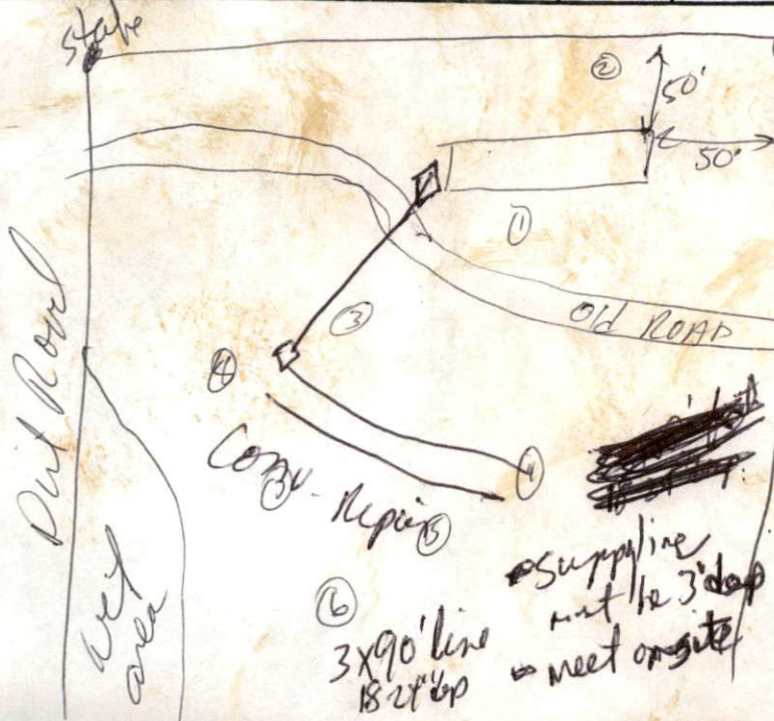 Stake
②
50'
50'
①
Old ROAD
③
Dirt Road
④
④
Conv. Repair
⑤
wet
area
⑥
3x90' line
18 24" dp
supply line
must be 3' deep
meet onsite